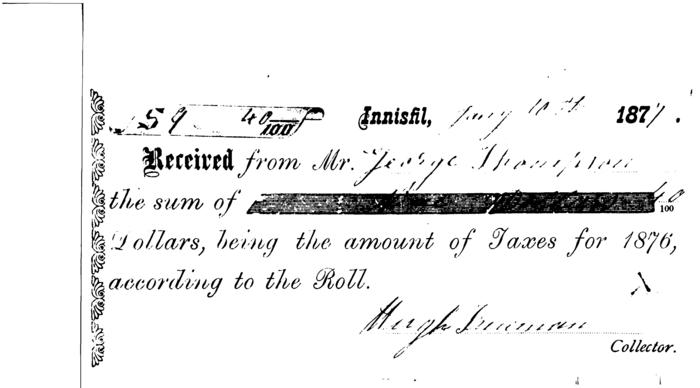 59 40/100 Innisfil, Jany 10th 1877.
Received from Mr. George Thompson
the sum of 40/100
Dollars, being the amount of Taxes for 1876,
according to the Roll.
Hugh Freeman
Collector.